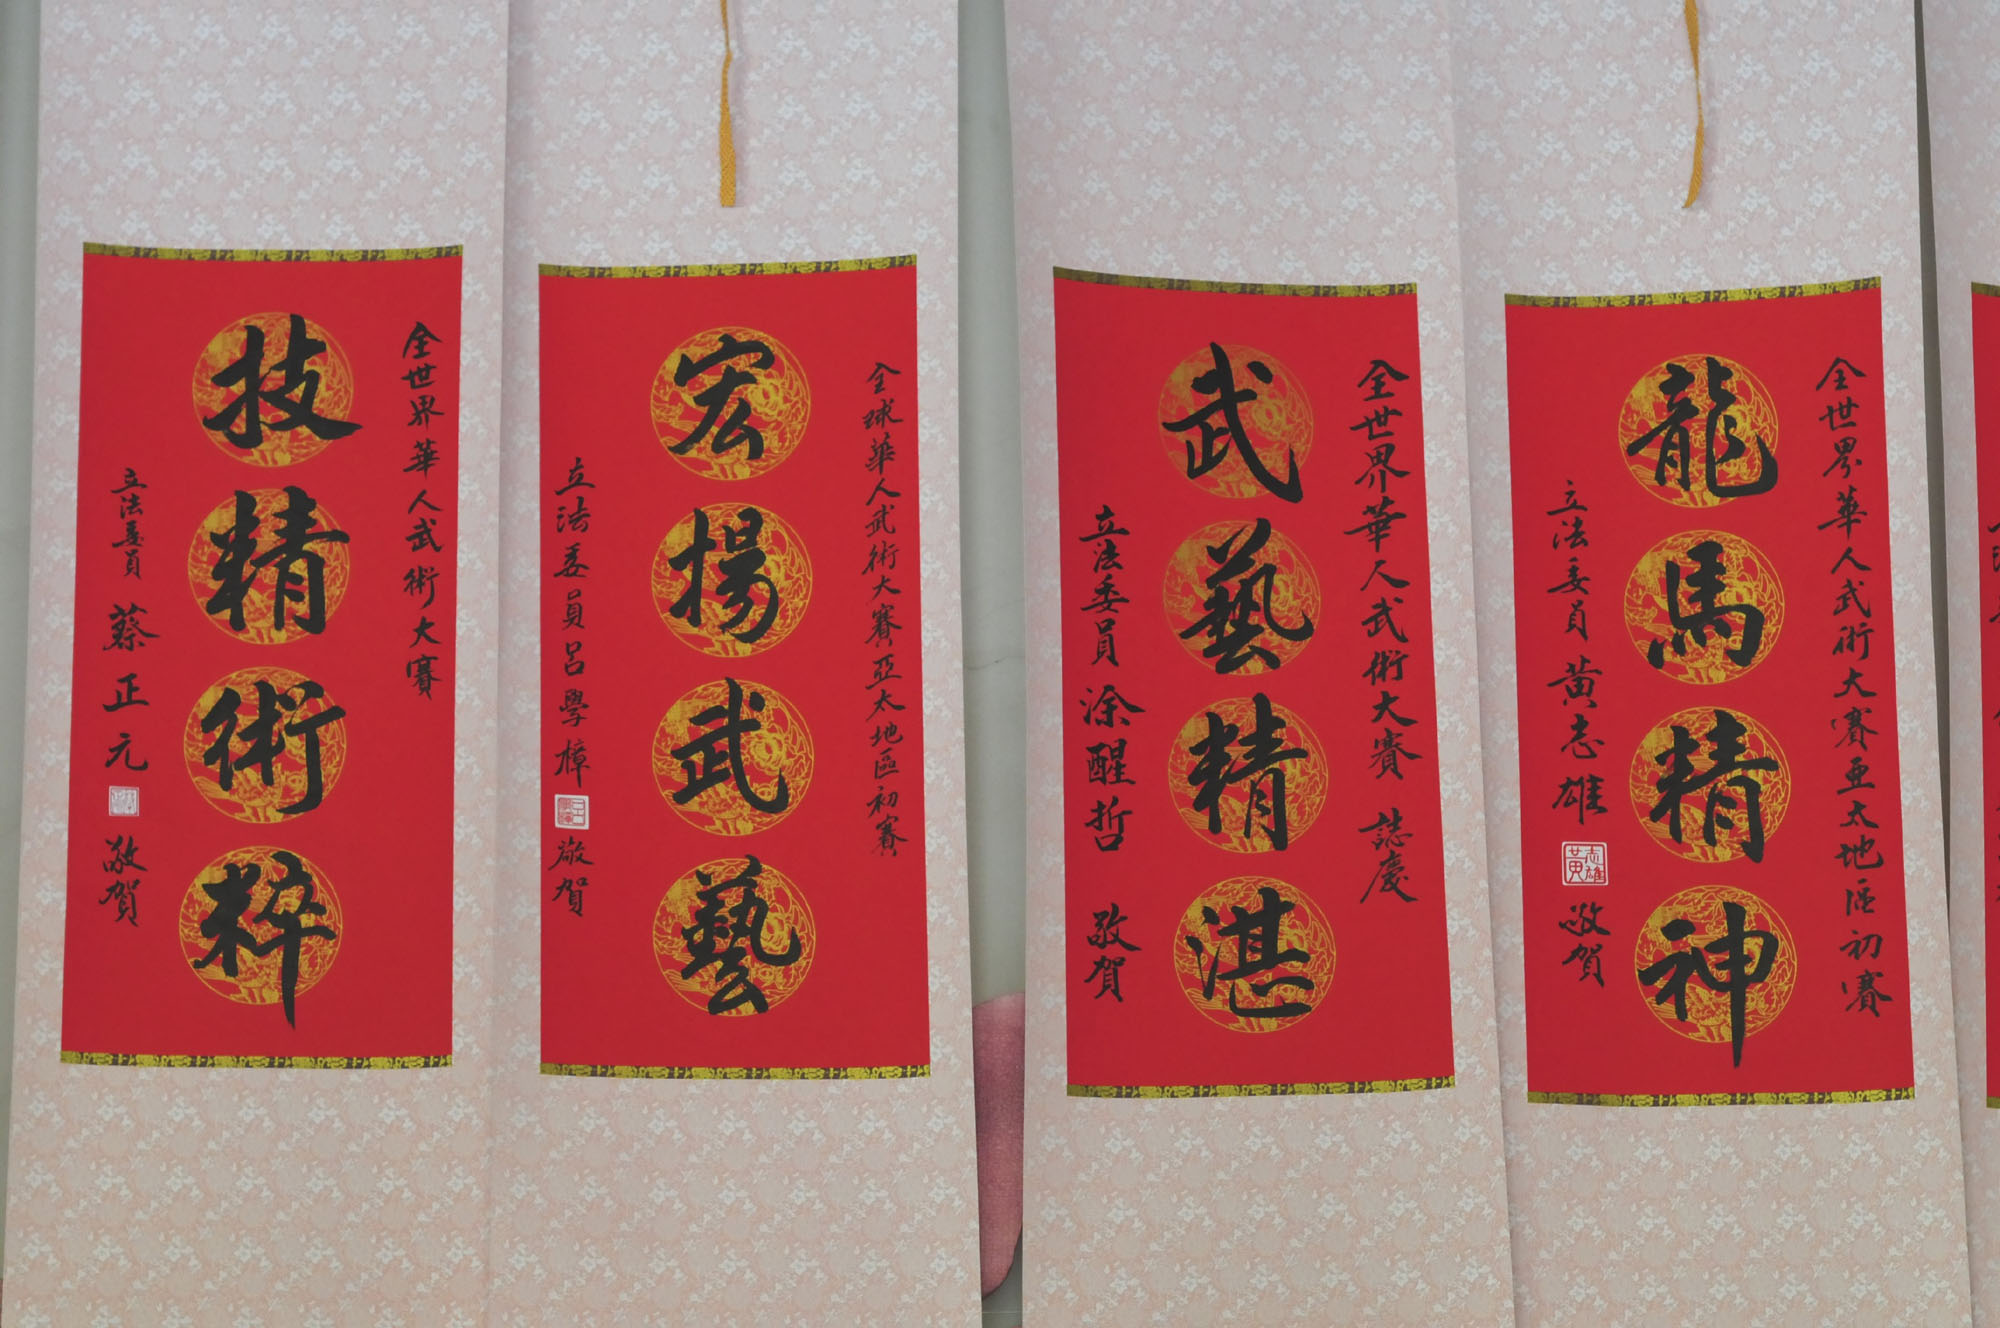 全世界華人武術大賽
技精術粹
立法委員 蔡正元 敬賀
全球華人武術大賽亞太地區初賽
宏揚武藝
立法委員呂學樟 敬賀
全世界華人武術大賽 誌慶
武藝精湛
立法委員 涂醒哲 敬賀
全世界華人武術大賽亞太地區初賽
龍馬精神
立法委員 黃志雄 敬賀
黃志雄